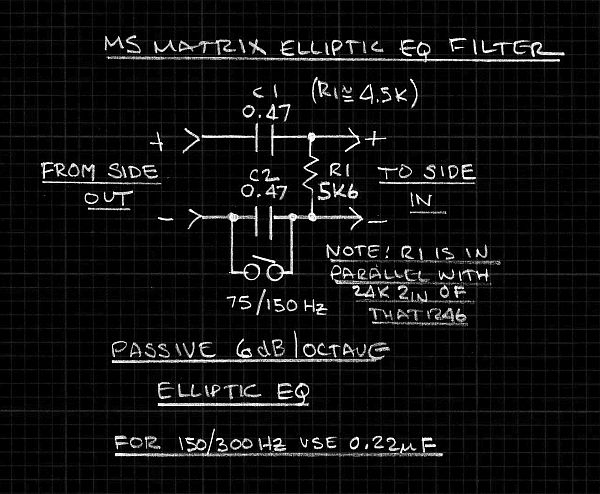 MS MATRIX ELLIPTIC EQ FILTER
C1 (R1≅4.5K)
0.47
+ +
FROM SIDE OUT
C2
0.47
R1
5K6
TO SIDE IN
- -
NOTE! R1 IS IN
PARALLEL WITH
24K ZIN OF
THAT 1246
75/150 HZ
PASSIVE 6dB/OCTAVE
ELLIPTIC EQ
FOR 150/300HZ USE 0.22µF